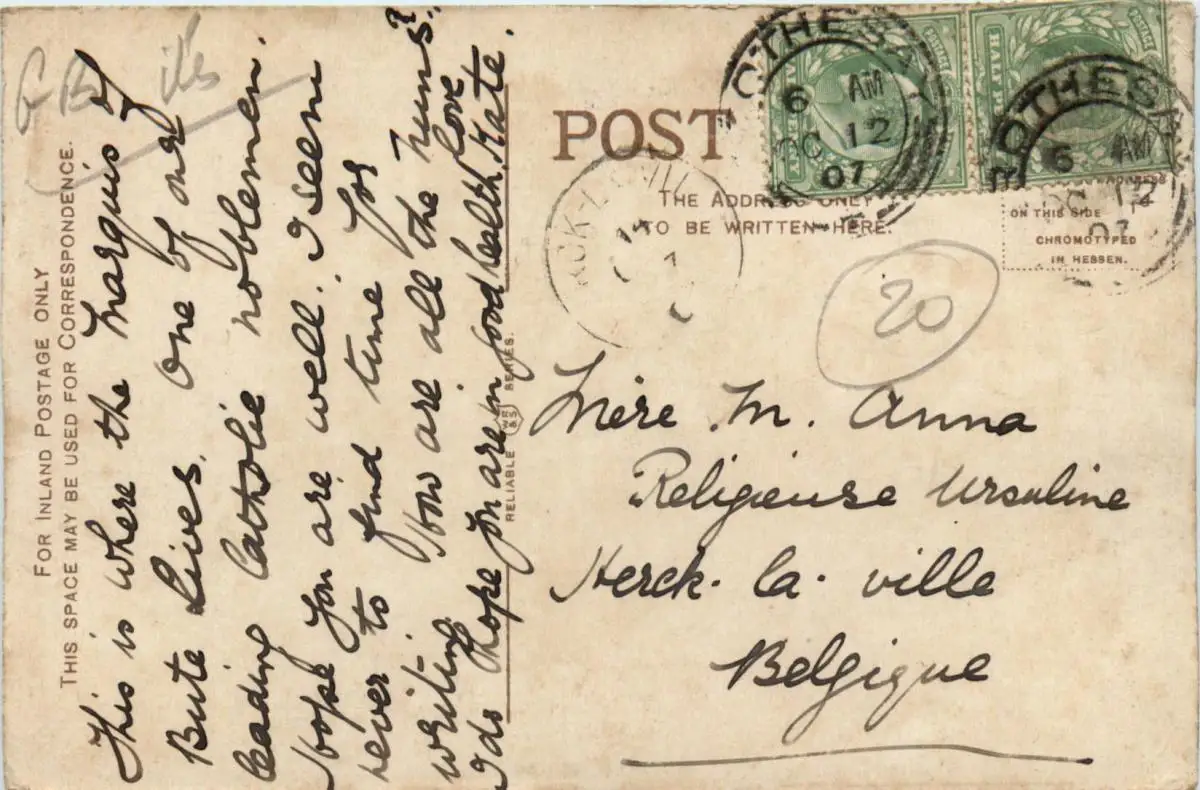 GB
its
FOR INLAND POSTAGE ONLY
THIS SPACE MAY BE USED FOR CORRESPONDENCE.
This is where the Marquis of
Bute Lives. One of our
leading Catholic noblemen.
Hope you are well. I seem
never to find time for
writing. How are all the nuns?
I do hope you are in good health. Love
Kate.
RELIABLE WR&S SERIES.
POST
THE ADDRESS ONLY
TO BE WRITTEN HERE.
ADDRESS
ON THIS SIDE
CHROMOTYPED
IN HESSEN.
POSTAGE
HALF PENNY
POSTAGE
HALF PENNY
ROTHESAY
6 AM
OC 12
07
ROTHESAY
6 AM
OC 12
07
20
Mère M. Anna
Religieuse Ursuline
Herck. la. ville
Belgique